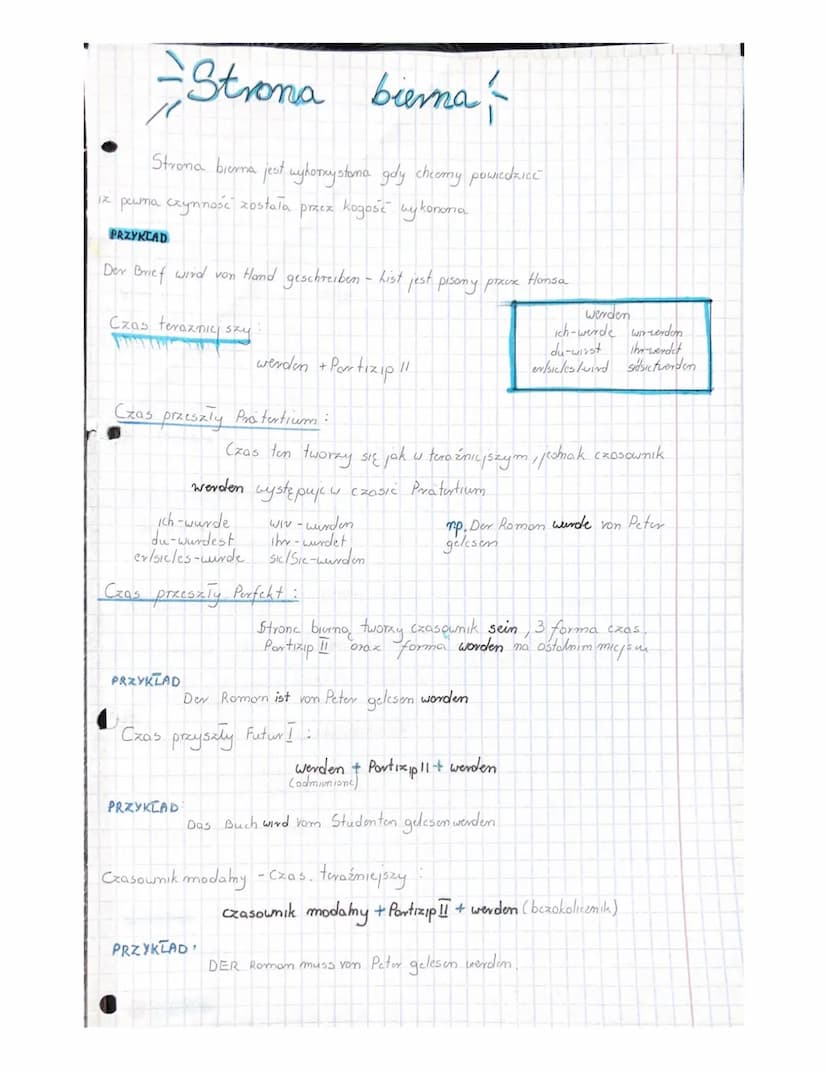 Strona bierna
Strona bierna jest wykorzystana gdy chcemy powiedzieć
iż pewna czynność została przez kogoś wykonana
PRZYKŁAD
Der Brief wird von Hand geschreiben - List jest pisany przez Hansa
Czas teraźniejszy :
werden + Partizip II
werden
ich-werde wir-werden
du-wirst ihr-werdet
er/sie/es/wird
Czas przeszły Prätertium :
Czas ten tworzy się jak w teraźniejszym, jednak czasownik
werden występuje w czasie Prätertium
ich-wurde wir-wurden
du-wurdest ihr-wurdet
er/sie/es-wurde sie/Sie-wurden
np. Der Roman wurde von Peter
gelesen
Czas przeszły Perfekt :
Stronę bierną tworzy czasownik sein, 3 forma czas.
Partizip II oraz forma worden na ostatnim miejscu
PRZYKŁAD
Der Roman ist von Peter gelesen worden
Czas przyszły Futur I :
werden + Partizip II + werden
(odmienione)
PRZYKŁAD:
Das Buch wird vom Studenten gelesen werden
Czasownik modalny - Czas. teraźniejszy :
czasownik modalny + Partizip II + werden (bezokolicznik)
PRZYKŁAD:
DER Roman muss von Peter gelesen werden.